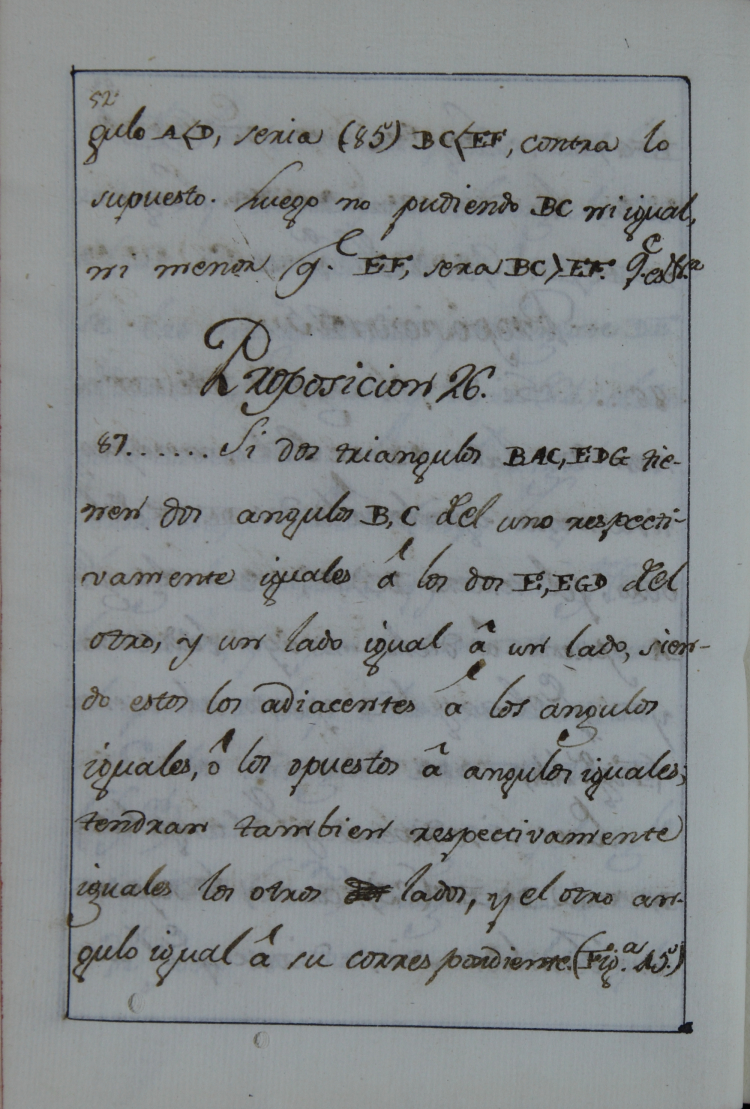 52
gulo A<D, seria (85) BC<EF, contra lo
supuesto. Luego no pudiendo BC ni igual,
ni menor q.e EF, sera BC>EF. Q.e es
Proposicion 26.
87...... Si dos triangulos BAC, EDG tie-
nen dos angulos B, C del uno respecti-
vamente iguales â los dos E, EGD del
otro, y un lado igual â un lado, sien-
do estos los adiacentes â los angulos
iguales, ô los opuestos â angulos iguales;
tendran tambien respectivamente
iguales los otros lados, y el otro an-
gulo igual â su correspondiente. (Fig.a 45.)